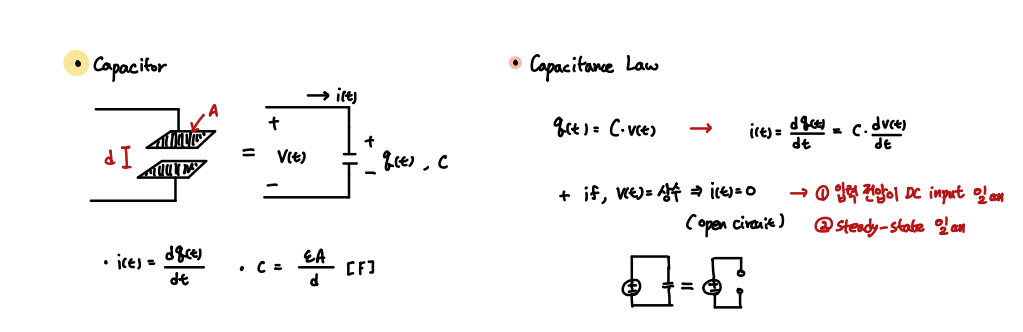 • Capacitor
A
d
=
→ i(t)
+
V(t)
-
+
- q(t), C
· i(t) = dq(t)/dt
· C = εA/d [F]
• Capacitance Law
q(t) = C·v(t) → i(t) = dq(t)/dt = C·dv(t)/dt
+ if, v(t)=상수 ⇒ i(t)=0 → ① 입력 전압이 DC input 일 때
(open circuit) ② Steady-state 일 때
=